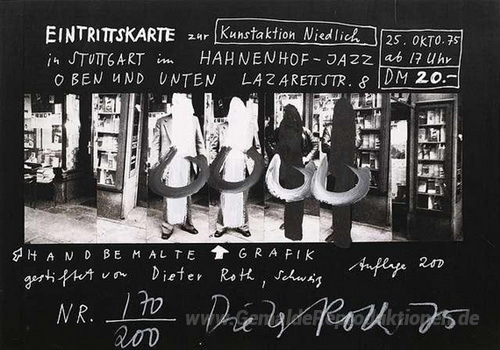 EINTRITTSKARTE zur Kunstaktion Niedlich
in STUTTGART im HAHNENHOF-JAZZ
OBEN UND UNTEN LAZARETTSTR. 8
25. OKTO. 75
ab 17 Uhr
DM 20.-
HANDBEMALTE GRAFIK
gestiftet von Dieter Roth, Schweiz
Auflage 200
NR. 170
200
Dieter Roth 75
www.GemaldeReproduktionen.de